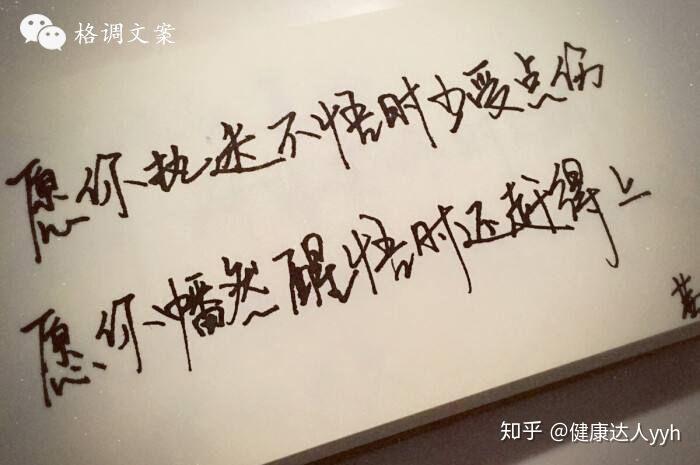 格调文案
愿你执迷不悟时少受点伤
愿你幡然醒悟时还赶得上
知乎 @健康达人yyh